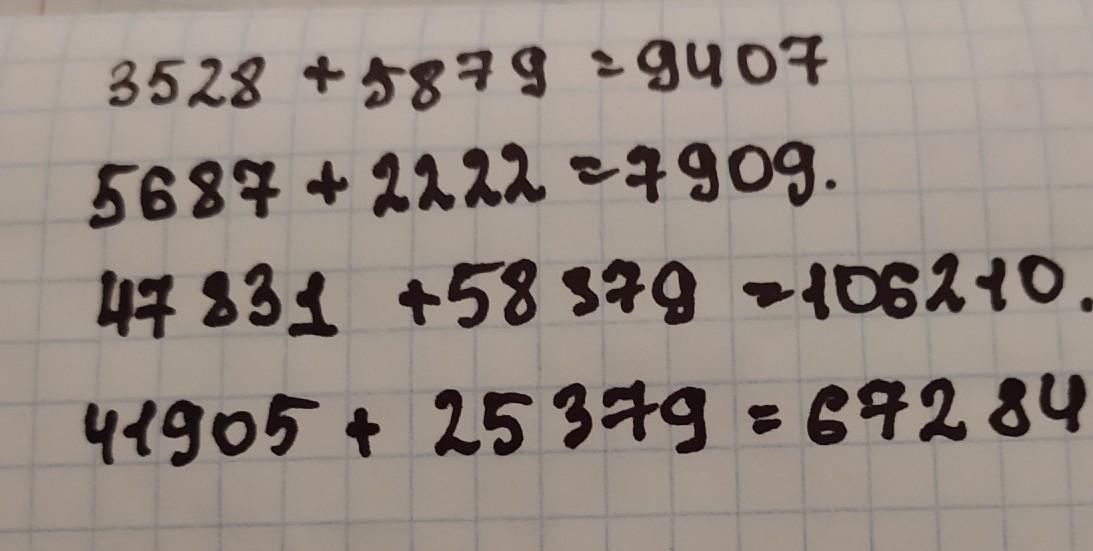 3528 + 5879 = 9407
5687 + 2222 = 7909.
47 831 + 58 379 = 106210.
41905 + 25 379 = 672 84